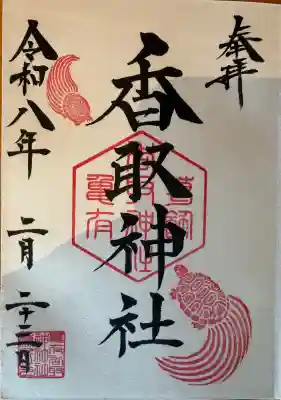 奉拝
香取神社
亀有
香取神社
令和八年
二月二十三日